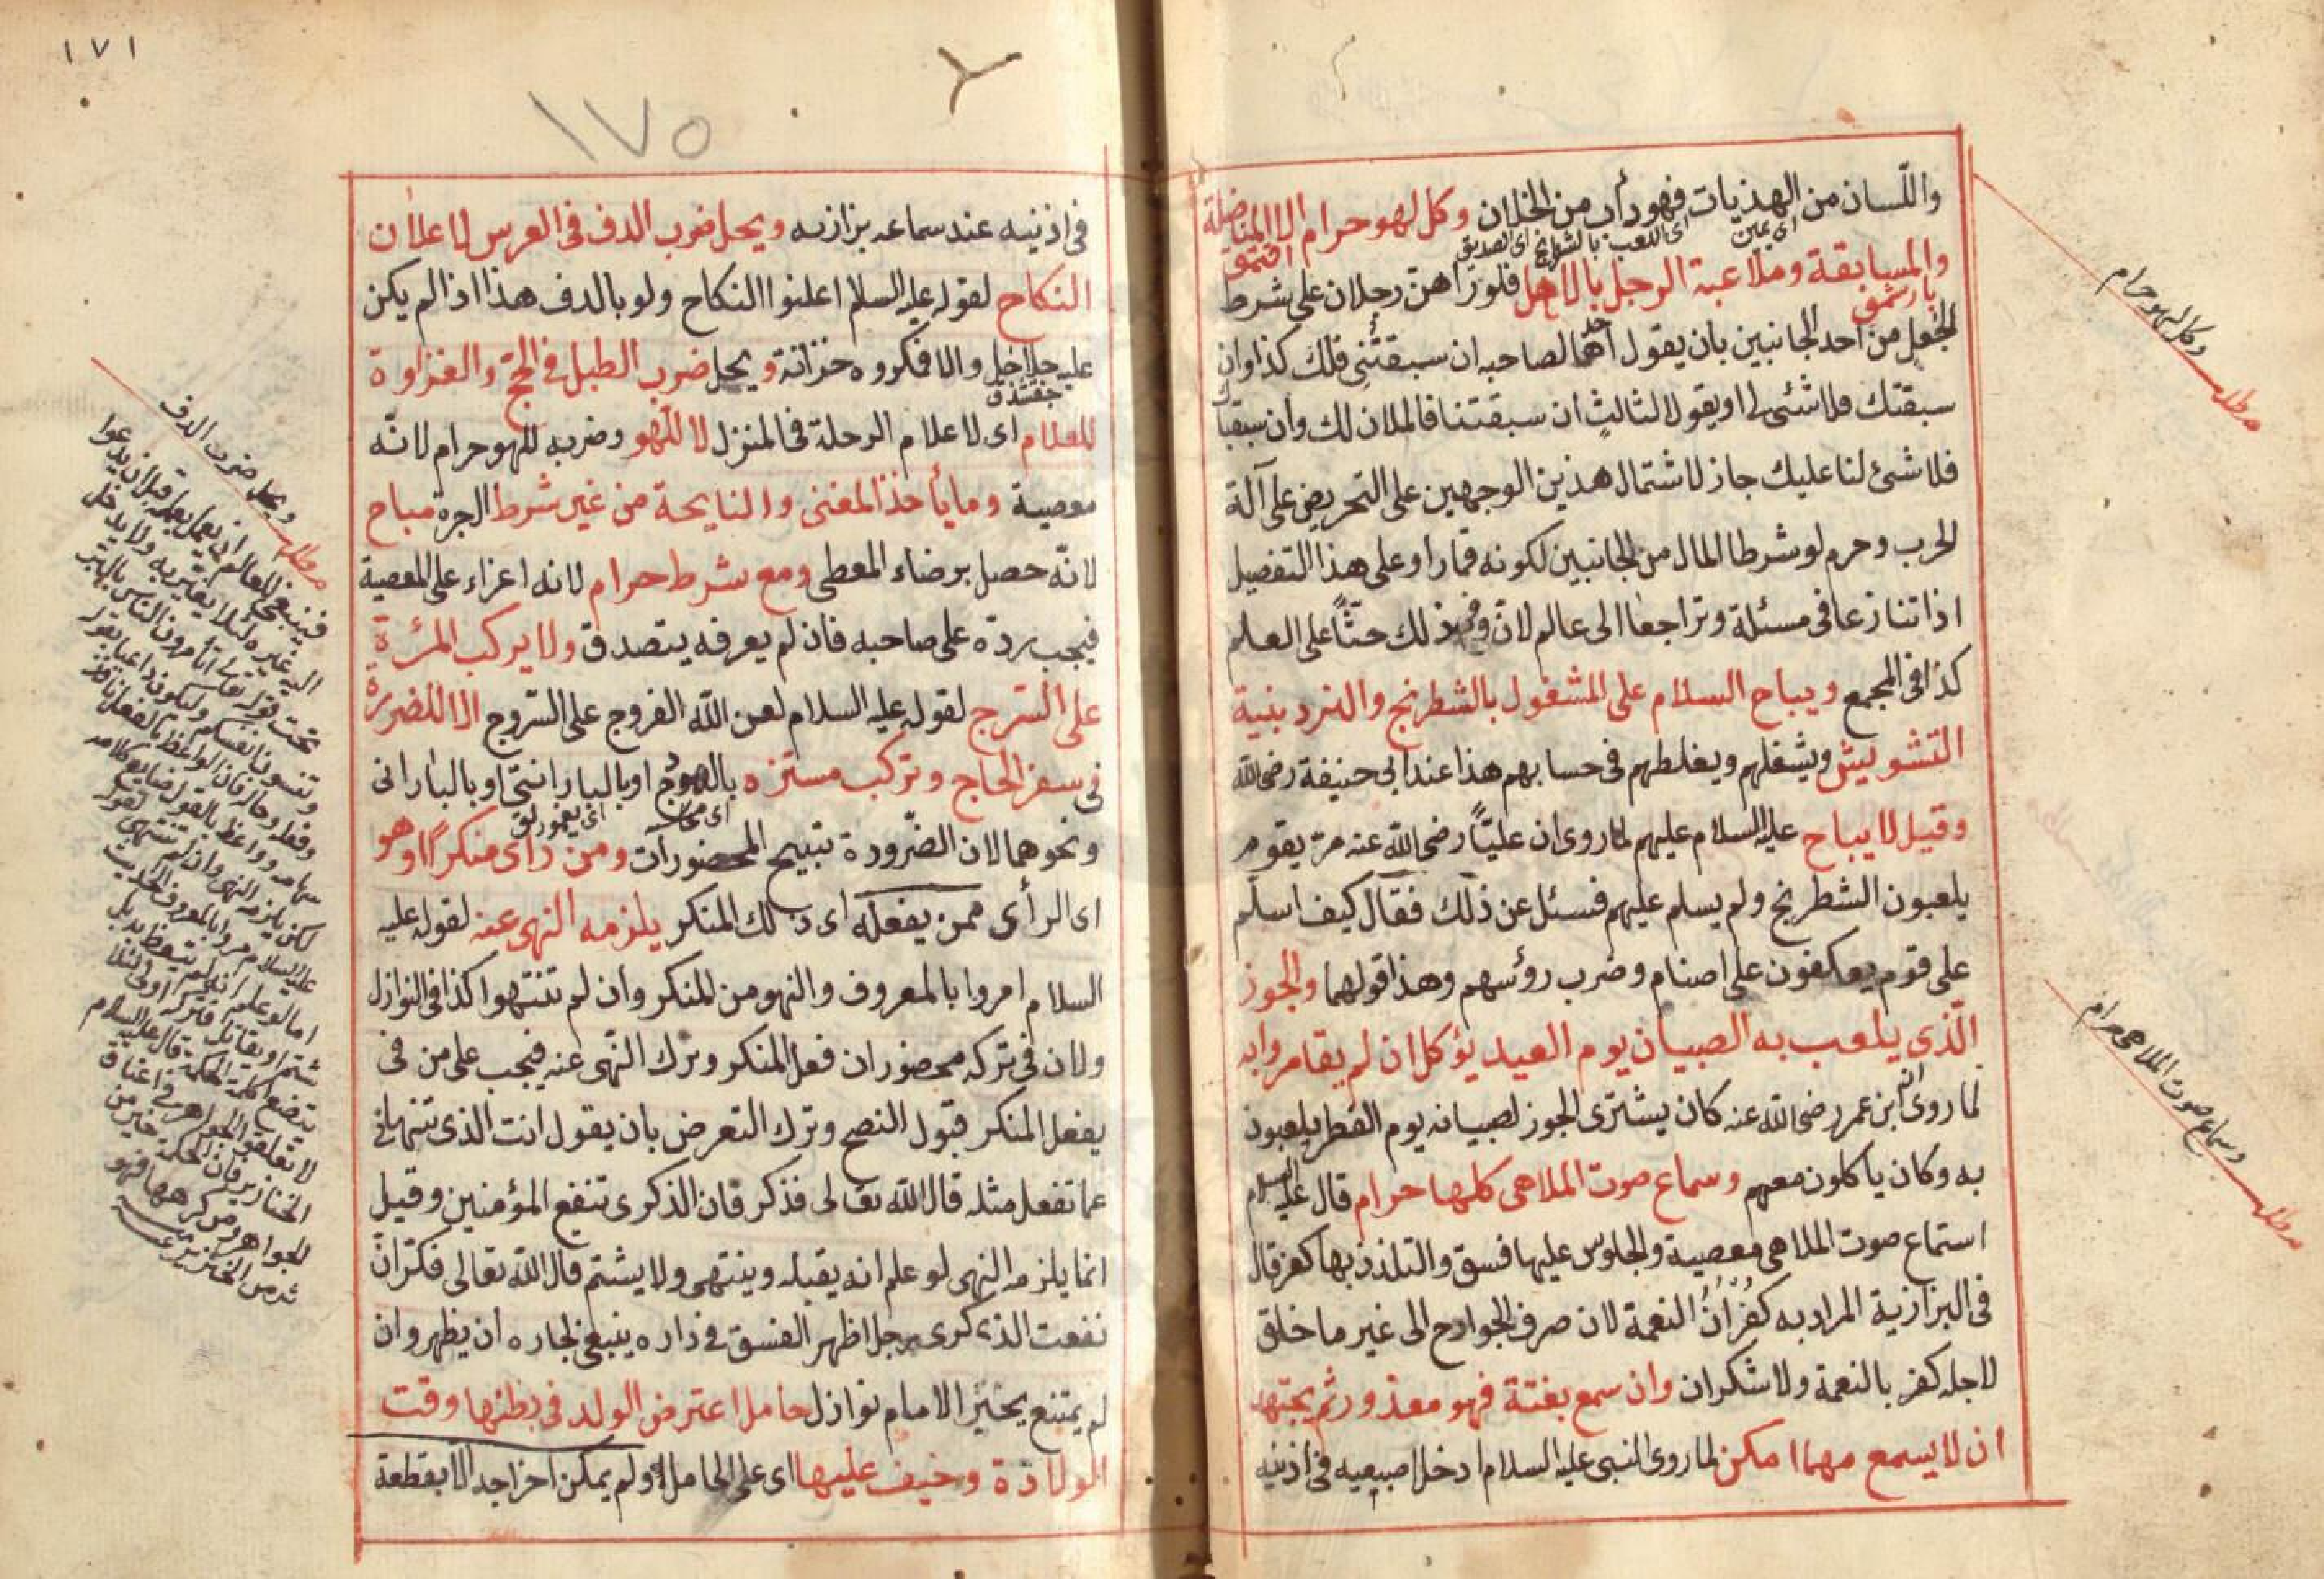 واللّسان من الهذيات فهو دأب من الخلان وكل لهو حرام الا المناضلة
اى يمين
اى اللعب بالشطرنج اى الصديق
والمسابقة وملاعبة الرجل بالاهل فلو تراهن رجلان على شرط
الجعل من احد الجانبين بان يقول احدهما لصاحبه ان سبقتنى فلك كذا وان
سبقتك فلا شئ لى او يقول الثالث ان سبقتنا فالمالان لك وان سبقناك
فلا شئ لنا عليك جاز لاشتمال هذين الوجهين على التحريض على آلة
الحرب وحرم لو شرطا المال من الجانبين لكونه قمارا وعلى هذا التفصيل
اذا تنازعا فى مسئلة وتراجعا الى عالم لان فى ذلك حثّاً على العلم
كذا فى المجمع ويباح السلام على المشغول بالشطرنج والنرد بنية
التشويش ويشغلهم ويغلطهم فى حسابهم هذا عند ابى حنيفة رضى الله
وقيل لا يباح عليه السلام عليهم لما روى ان عليّاً رضى الله عنه مرّ بقوم
يلعبون الشطرنج ولم يسلم عليهم فسئل عن ذلك فقال كيف اسلم
على قوم يعكفون على اصنام وضرب رؤسهم وهذا قولهما والجوز
الّذى يلعب به الصبيان يوم العيد يؤكل ان لم يقامروا به
لما روى ان ابن عمر رضى الله عنه كان يشترى الجوز لصبيانه يوم الفطر يلعبون
به وكان ياكلون معهم وسماع صوت الملاهى كلها حرام قال عليه السلام
استماع صوت الملاهى معصية والجلوس عليها فسق والتلذذ بها كفر قال
فى البزازية المراد به كفران النعمة لان صرف الجوارح الى غير ما خلق
لاجله كفر بالنعمة ولا شكران وان سمع بغتة فهو معذور ثم يجتهد
ان لا يسمع مهما امكن لما روى النبى عليه السلام ادخل اصبعيه فى اذنيه
وكل لهو حرام
مطلب
وسماع صوت الملاهى حرام
مطلب
١٧١
١٧٥
فى اذنيه عند سماعه بزازيه ويحل ضرب الدف فى العرس لاعلان
النكاح لقوله عليه السلام اعلنوا النكاح ولو بالدف هذا اذا لم يكن
عليه جلاجل والا فكروه خزانة ويحل ضرب الطبل فى الحج والغزاوة
للعلام اى لاعلام الرحلة فى المنزل لا للهو وضربه للهو حرام لانّه
معصية وما يأخذ المغنى والنايحة من غير شرط الجرة مباح
لانّه حصل برضاء المعطى ومع شرط حرام لانه اعزاء على المعصية
فيجب ردّه على صاحبه فان لم يعرفه يتصدق ولا يركب المرئة
على السّرج لقوله عليه السلام لعن الله الفروج على السّروج الا للضررة
فى سفر الحاج وتركب مستتره بالهودج او بالبارانتى او بالبارانى
ونحوهما لان الضّرورة تبيح المحضورات ومن رأى منكراً وهو
اى الرأى ممن يفعله اى ذلك المنكر يلزمه النهى عنه لقوله عليه
السلام امروا بالمعروف والنهو من المنكر وان لم تنتهوا كذا فى النوازل
ولان فى تركه محضوران فعل المنكر وترك النّهى عنه فيجب على من فى
يفعل المنكر قبول النصح وترك التعرض بان يقول انت الذى تنهانى
عما تفعل مثله قال الله تعالى فذكر فان الذكرى تنفع المؤمنين وقيل
انما يلزمه النهى لو علم انه يقبله وينتهى ولا يشتم قال الله تعالى فذكر ان
نفعت الذكرى رجل اظهر الفسق فى داره ينبغى لجاره ان يظهر وان
لم يمتنع يخير الامام نوازل حامل اعترض الولد فى بطنها وقت
الولادة وخيف عليها اى على الحامل ولم يمكن اخراجه الّا بقطعة
ويحل ضرب الدف
مطلب
فينبغى للعالم ان يعمل بعلمه قبل ان يدعوا
الى غيره لئلا يغتر به ولا يدخل
تحت قوله تعالى أتأمرون الناس بالبر
وتنسون انفسكم وليكون داعيا بقوله
وفعله وحاله فان الواعظ بالفعل نافذ
سهامه وواعظ بالقول ضايع كلامه
لكن يلزمه النهى وان لم تنتهى لقوله
عليه السلام مروا بالمعروف الحديث
اما لو علم انه لم يتعظ بل
شتم او يقاتل فتركه اولى لئلا
يتضع كلمة الحكمة قال عليه السلام
لا تعلقوا الجواهر فى اعناق
الخنازير فان الحكمة خير من
الجواهر ومن كرهها فهو
شر من الخنازير